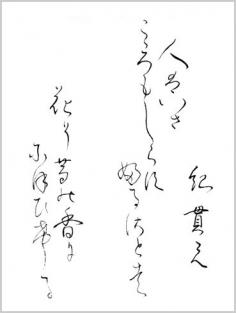 紀貫之
人はいさ
こころもしらす
ふるさとは
花そ昔の香に
にほひける